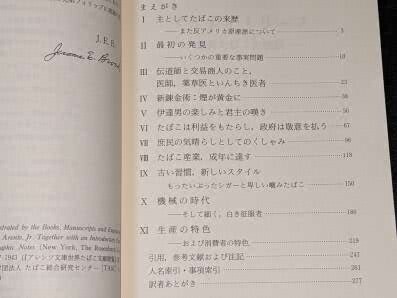 え フィリップに感謝
J. E. B.
Jerome E. Brooks
trated by the Books, Manuscripts and Engra
Arents, Jr. Together with an Introduction
graphic Notes (New York, The Rosenbac
-1943（『アレンツ文庫世界たばこ文献総覧
団法人 たばこ総合研究センター［TASC］
まえがき
I 主としてたばこの来歴
——また反アメリカ原産説について 3
II 最初の発見
——いくつかの重要な事実問題
III 伝道師と交易商人のこと，
医師，薬草医といんちき医者 23
IV 新錬金術：煙が黄金に 38
V 伊達男の楽しみと君主の嘆き 56
VI たばこは利益をもたらし，政府は敬意を払う 67
VII 庶民の気晴らしとしてのくしゃみ 96
VIII たばこ産業，成年に達す 118
IX 古い習慣，新しいスタイル
もったいぶったシガーと卑しい嚙みたばこ 150
X 機械の時代
——そして細く，白き征服者 186
XI 生産の特色
——および消費者の特色 219
引用，参考文献および注記 243
人名索引・事項索引 261
訳者あとがき 277